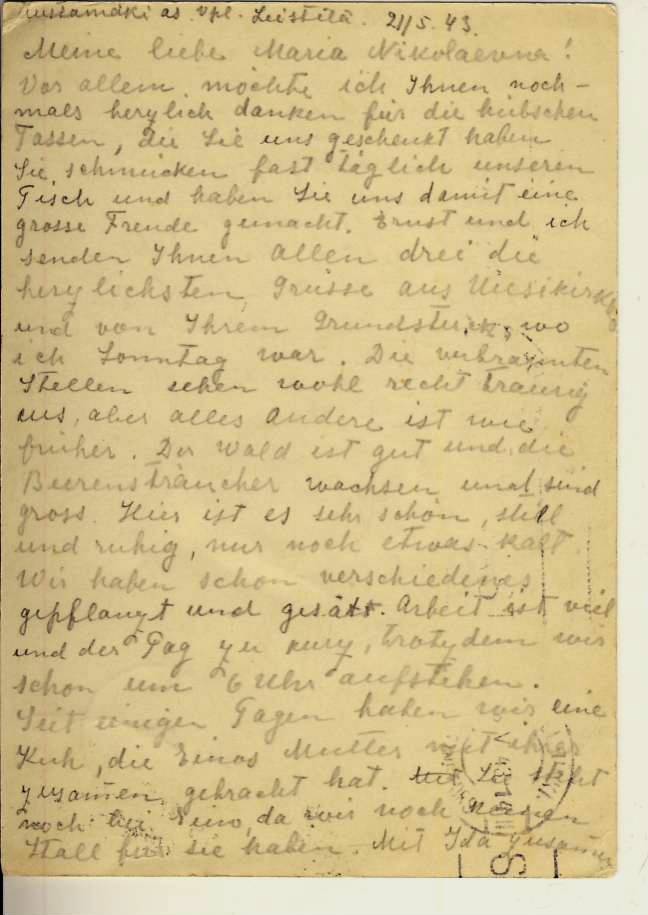 as. vpl. Leistilä. 21/5. 43.
Meine liebe Maria Nikolaevna!
Vor allem möchte ich Ihnen noch-
mals herzlich danken für die hübschen
Tassen, die Sie uns geschenkt haben
Sie schmücken fast täglich unseren
Tisch und haben Sie uns damit eine
grosse Freude gemacht. Ernst und ich
senden Ihnen allen drei die
herzlichsten Grüsse aus Uiesikirkko
und von Ihrem Grundstück, wo
ich Sonntag war. Die verbrannten
Stellen sehen wohl recht traurig
aus, aber alles andere ist wie
früher. Der Wald ist gut und die
Beerensträucher wachsen und sind
gross. Hier ist es sehr schön, still
und ruhig, nur noch etwas kalt.
Wir haben schon verschiedenes
gepflanzt und gesät. Arbeit ist viel
und der Tag zu kurz, trotzdem wir
schon um 6 Uhr aufstehen.
Seit einigen Tagen haben wir eine
Kuh, die Einos Mutter mit ihrer
zusamen gebracht hat. Sie steht
noch bei Eino, da wir noch keinen
Stall für sie haben. Mit Ida zusamen